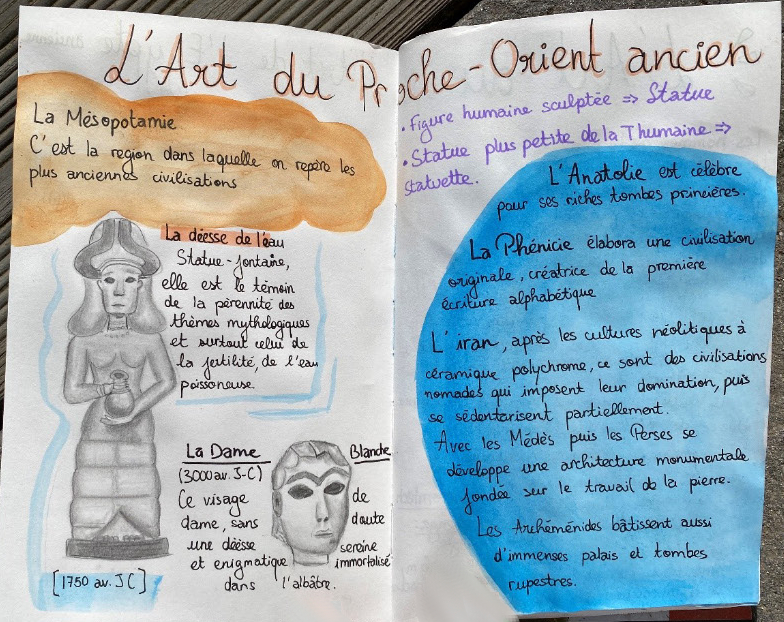 L'Art du Proche-Orient ancien
La Mésopotamie
C'est la région dans laquelle on repère les
plus anciennes civilisations
La déesse de l'eau
Statue-fontaine,
elle est le témoin
de la pérennité des
thèmes mythologiques
et surtout celui de
la fertilité, de l'eau
poissoneuse.
[1750 av. JC]
La Dame Blanche
(3000 av. J-C)
Ce visage de
dame, sans doute
une déesse sereine
et enigmatique immortalisé
dans l'albâtre.
• Figure humaine sculptée => Statue
• Statue plus petite de la T humaine =>
Statuette.
L'Anatolie est célèbre
pour ses riches tombes princières.
La Phénicie élabora une civilisation
originale, créatrice de la première
écriture alphabétique
L'iran, après les cultures néolitiques à
céramique polychrome, ce sont des civilisations
nomades qui imposent leur domination, puis
se sédentarisent partiellement.
Avec les Médès puis les Perses se
développe une architecture monumentale
fondée sur le travail de la pierre.
Les Archéménides bâtissent aussi
d'immenses palais et tombes
rupestres.